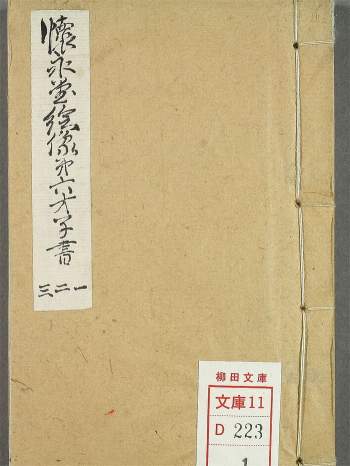 懐永堂絵像第六才子書
三二一
柳田文庫
文庫11
D 223
1